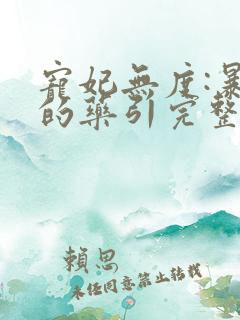 寵妃無度:暴
的藥引完整
賴思
未任同意禁止转载